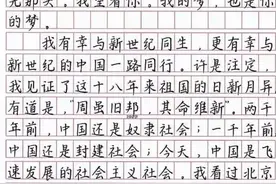 光那天。我望着你。我的梦，也是你
的梦。
我有幸与新世纪同生，更有幸与
新世纪的中国一路同行。许是注定，
我见证了这十八年来祖国的日新月异
有道是，“周虽旧邦，其命维新”。两千
年前，中国还是奴隶社会；一千年前
中国还是封建社会；今天，中国是飞
速发展的社会主义社会。我看过北京